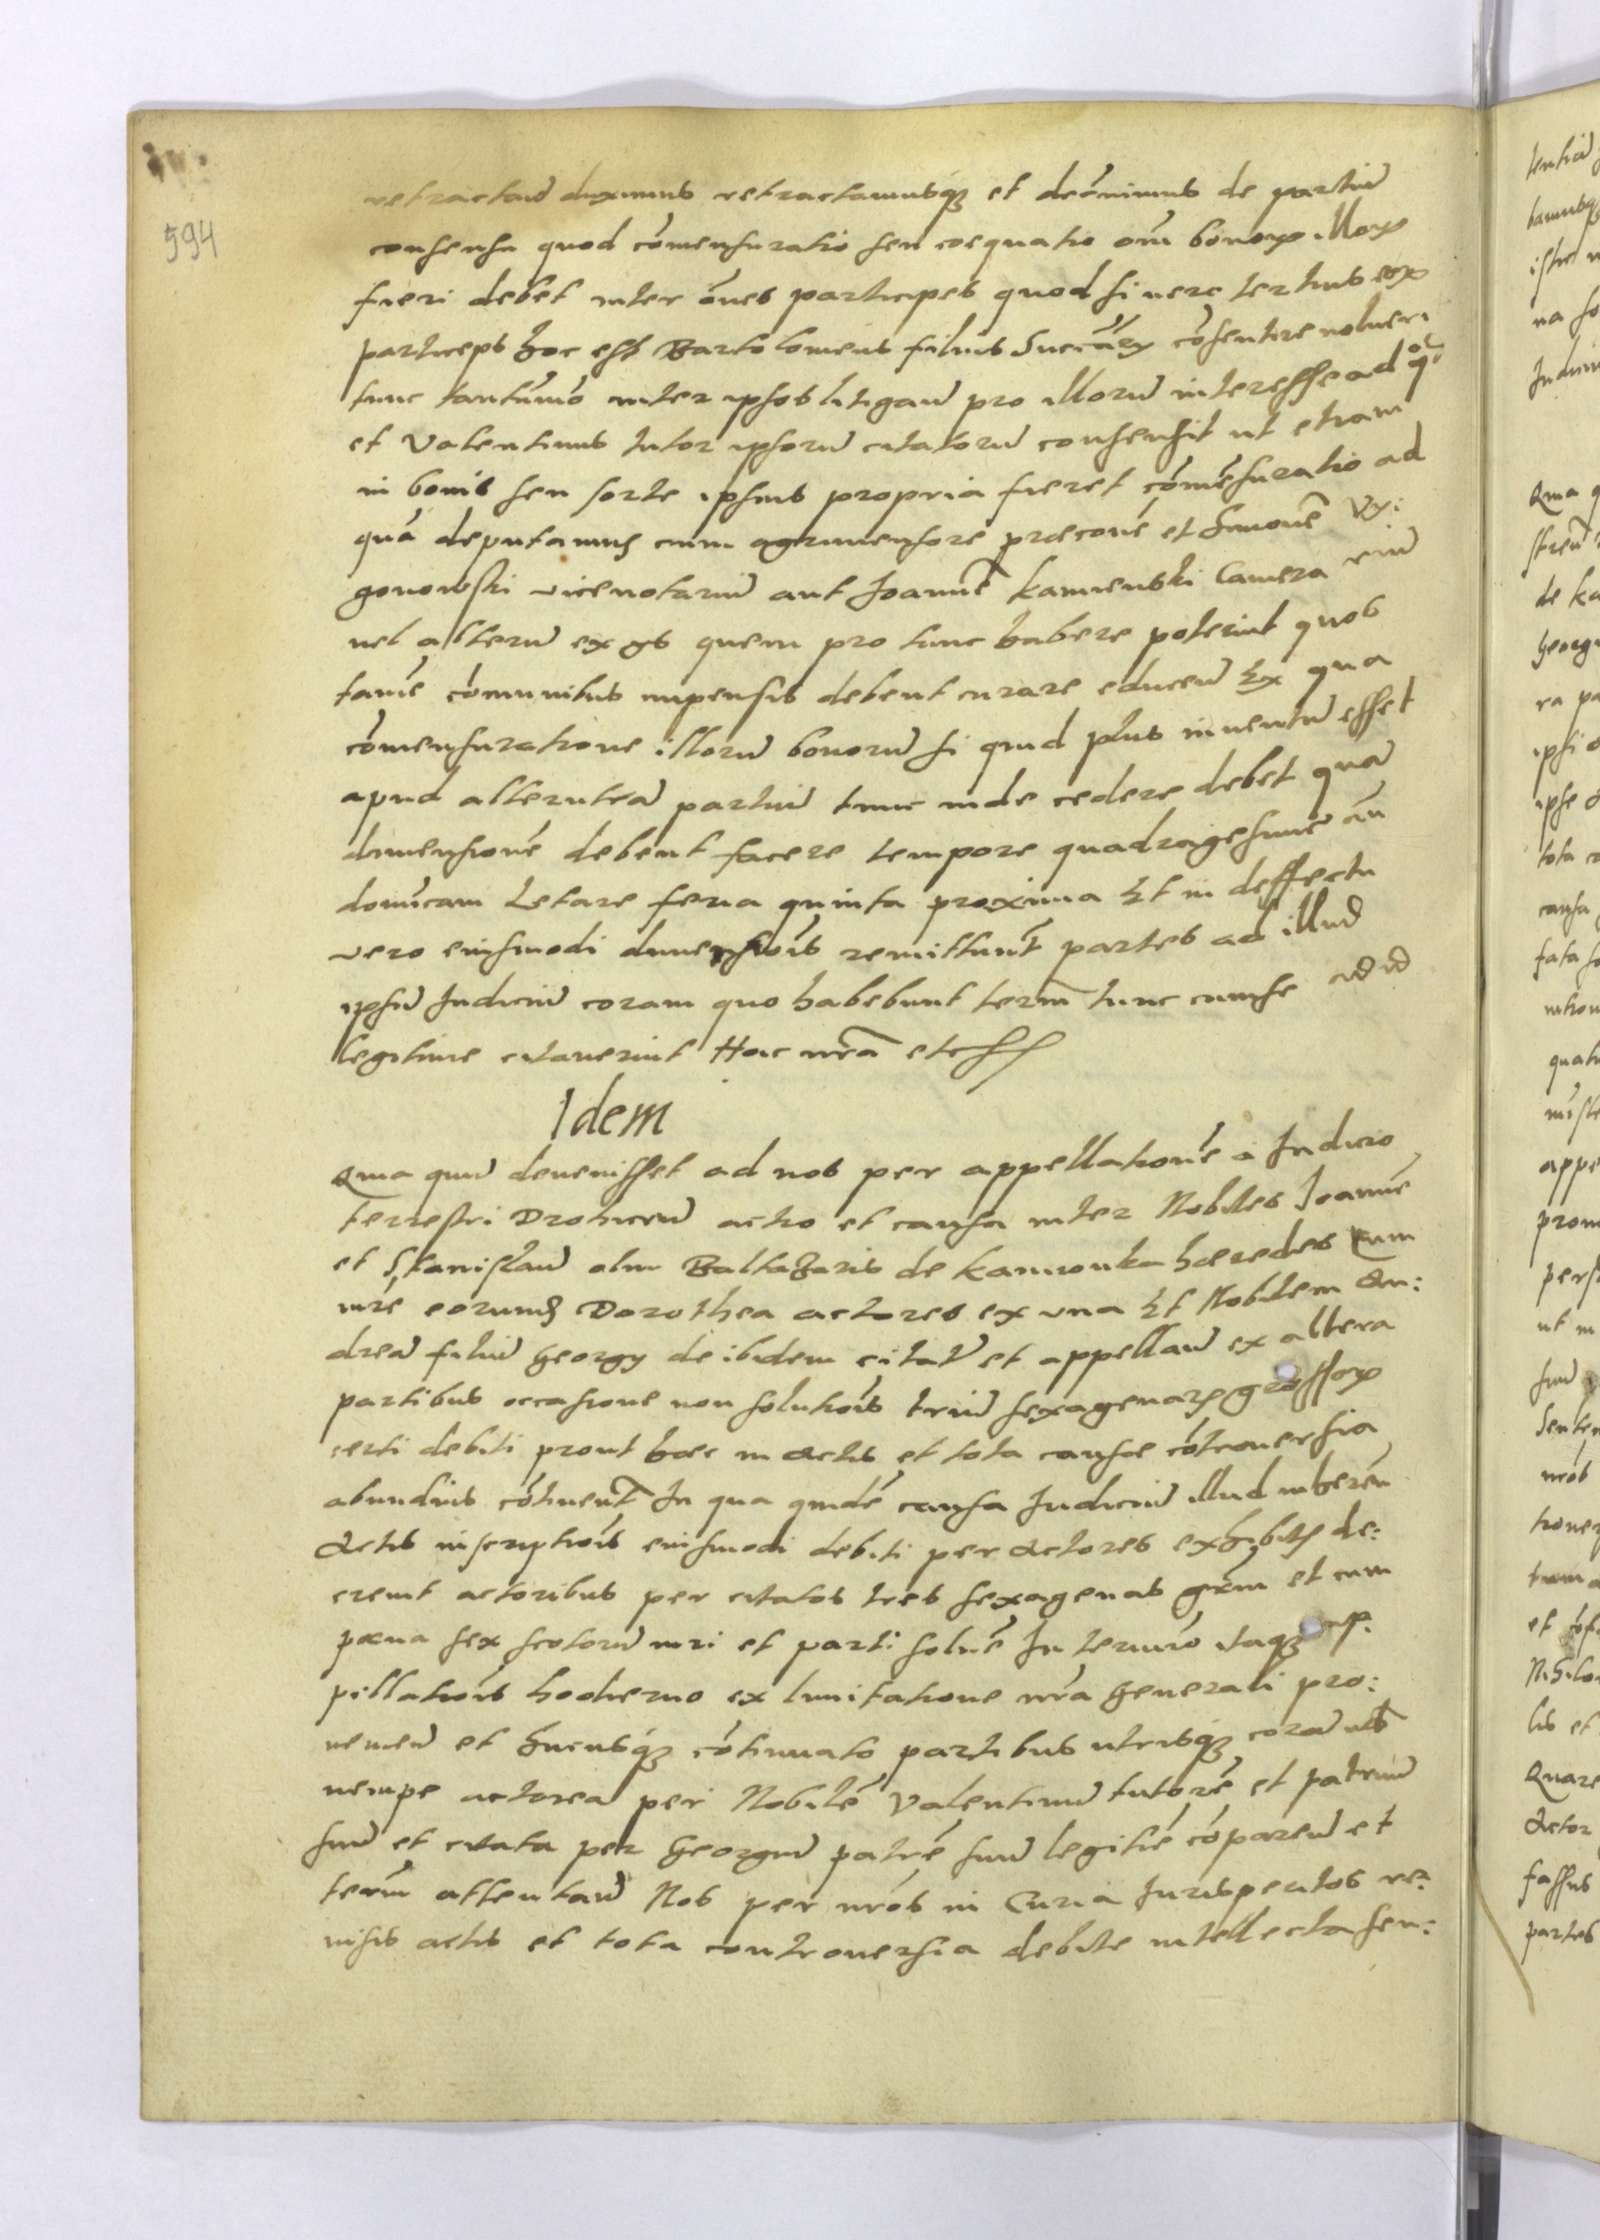 594
retractand duximus retractamusq et decrnimus de partiu
consensu quod comensuratio seu coequatio om bonor illor
fieri debet inter ones participes quod si vero tertius eor
particeps hoc est Bartolomeus filius consentire noluerit
tunc tantumo inter ipsos litigan pro illoru interesse ad q
et Valentinus tutor ipsoru citatoru consensit ut etiam
in bonis seu sorte ipsius propria fieret comesuratio ad
qua deputamus cum agrimensore præcone et Simone Vy:
gonowski vicenotariu aut Joanne Kamienski Camera riu
vel alteru ex gs quem pro tunc habere poterint quos
tame comunibus impensis debent curare educen Ex qua
comensuratione illoru bonoru si quid plus inventu esset
apud alterutra partiu tunc inde cedere debet qua
dimensione debent facere tempore quadragesime an
donicam Letare feria quinta proxima Et in deffectu
vero eiusmodi dimensiois remittunt partes ad illud
ipsu Judiciu coram quo habebunt term tunc cum se ad id
legitime citaverint Hac nra etc
Idem
Quia quu devenisset ad nos per appellatione a Judicio
terrestri Drohicen actio et causa inter Nobiles Joanne
et Stanislau olim Baltazaris de Kamionka hæredes cum
mre eorund Dorothea actores ex una Et Nobilem An:
drea filiu Georgy de ibidem citat et appellan ex altera
partibus occasione non solutiois triu sexagenar grossor
certi debiti prout hæc in actis et tota causæ cotroversia
abundius cotinent In qua quide causa Judiciu illud inheren
Actis inscriptiois eiusmodi debiti per actores exhibitis de:
crevit actoribus per citatos tres sexagenas grm et cum
pæna sex scotoru iuri et parti solve In termio itaq ap:
pellatiois hodierno ex limitatione nra generali pro:
venien et hucusq cotinuato partibus utrisq cora nob
nempe actorea per Nobile Valentinu tutore et patruu
suu et citata per Georgiu patre suu legitie coparen et
term attentan Nos per nros in Curia Jurisperitos re:
visis actis et tota controversia debite intellecta sen: